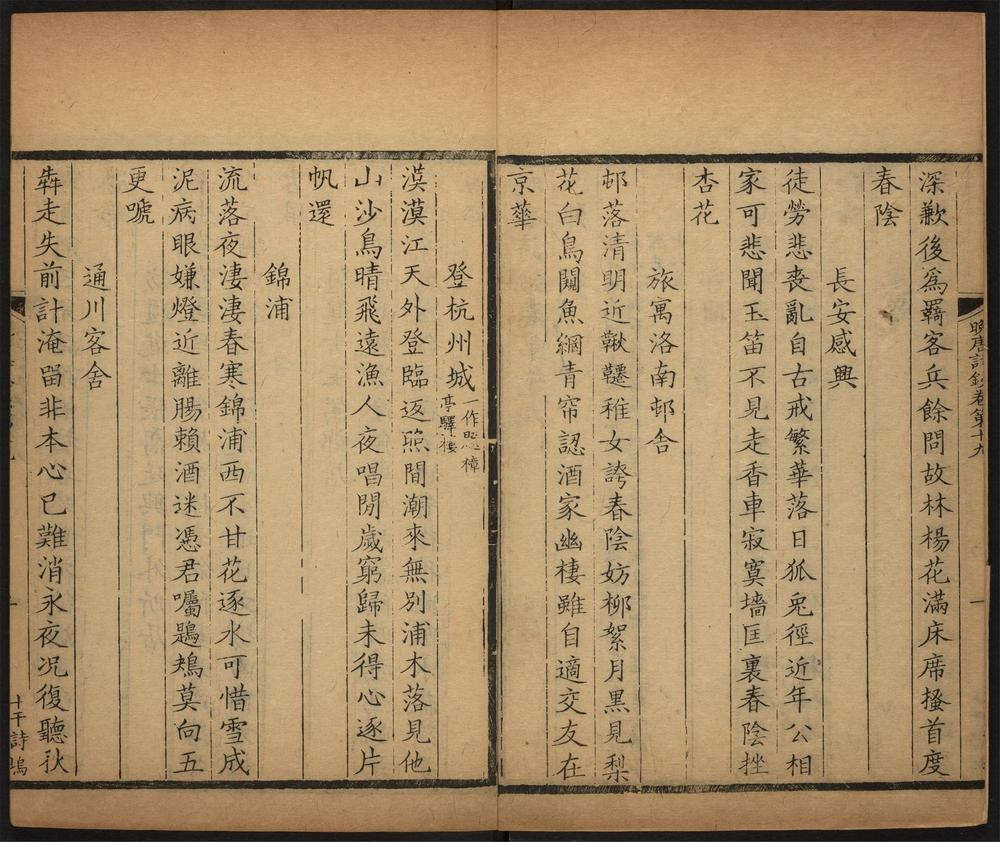 深歉後爲羇客兵餘問故林楊花滿床席搔首度
春陰
長安感興
徒勞悲喪亂自古戒繁華落日狐兎徑近年公相
家可悲聞玉笛不見走香車寂寞墻匡裏春陰挫
杏花
旅寓洛南邨舍
邨落清明近鞦韆稚女誇春陰妨柳絮月黒見梨
花白鳥闚魚綱青帘認酒家幽棲雖自適交友在
京華
晚唐詩鈔卷第十九
一
登杭州城一作題樟
亭驛樓
漠漠江天外登臨返照間潮來無別浦木落見他
山沙鳥晴飛遠漁人夜唱閒歲窮歸未得心逐片
帆還
錦浦
流落夜淒淒春寒錦浦西不甘花逐水可惜雪成
泥病眼嫌燈近離腸賴酒迷憑君囑鶗鴂莫向五
更嗁
通川客舍
犇走失前計淹留非本心已難消永夜况復聽秋
十干詩塢